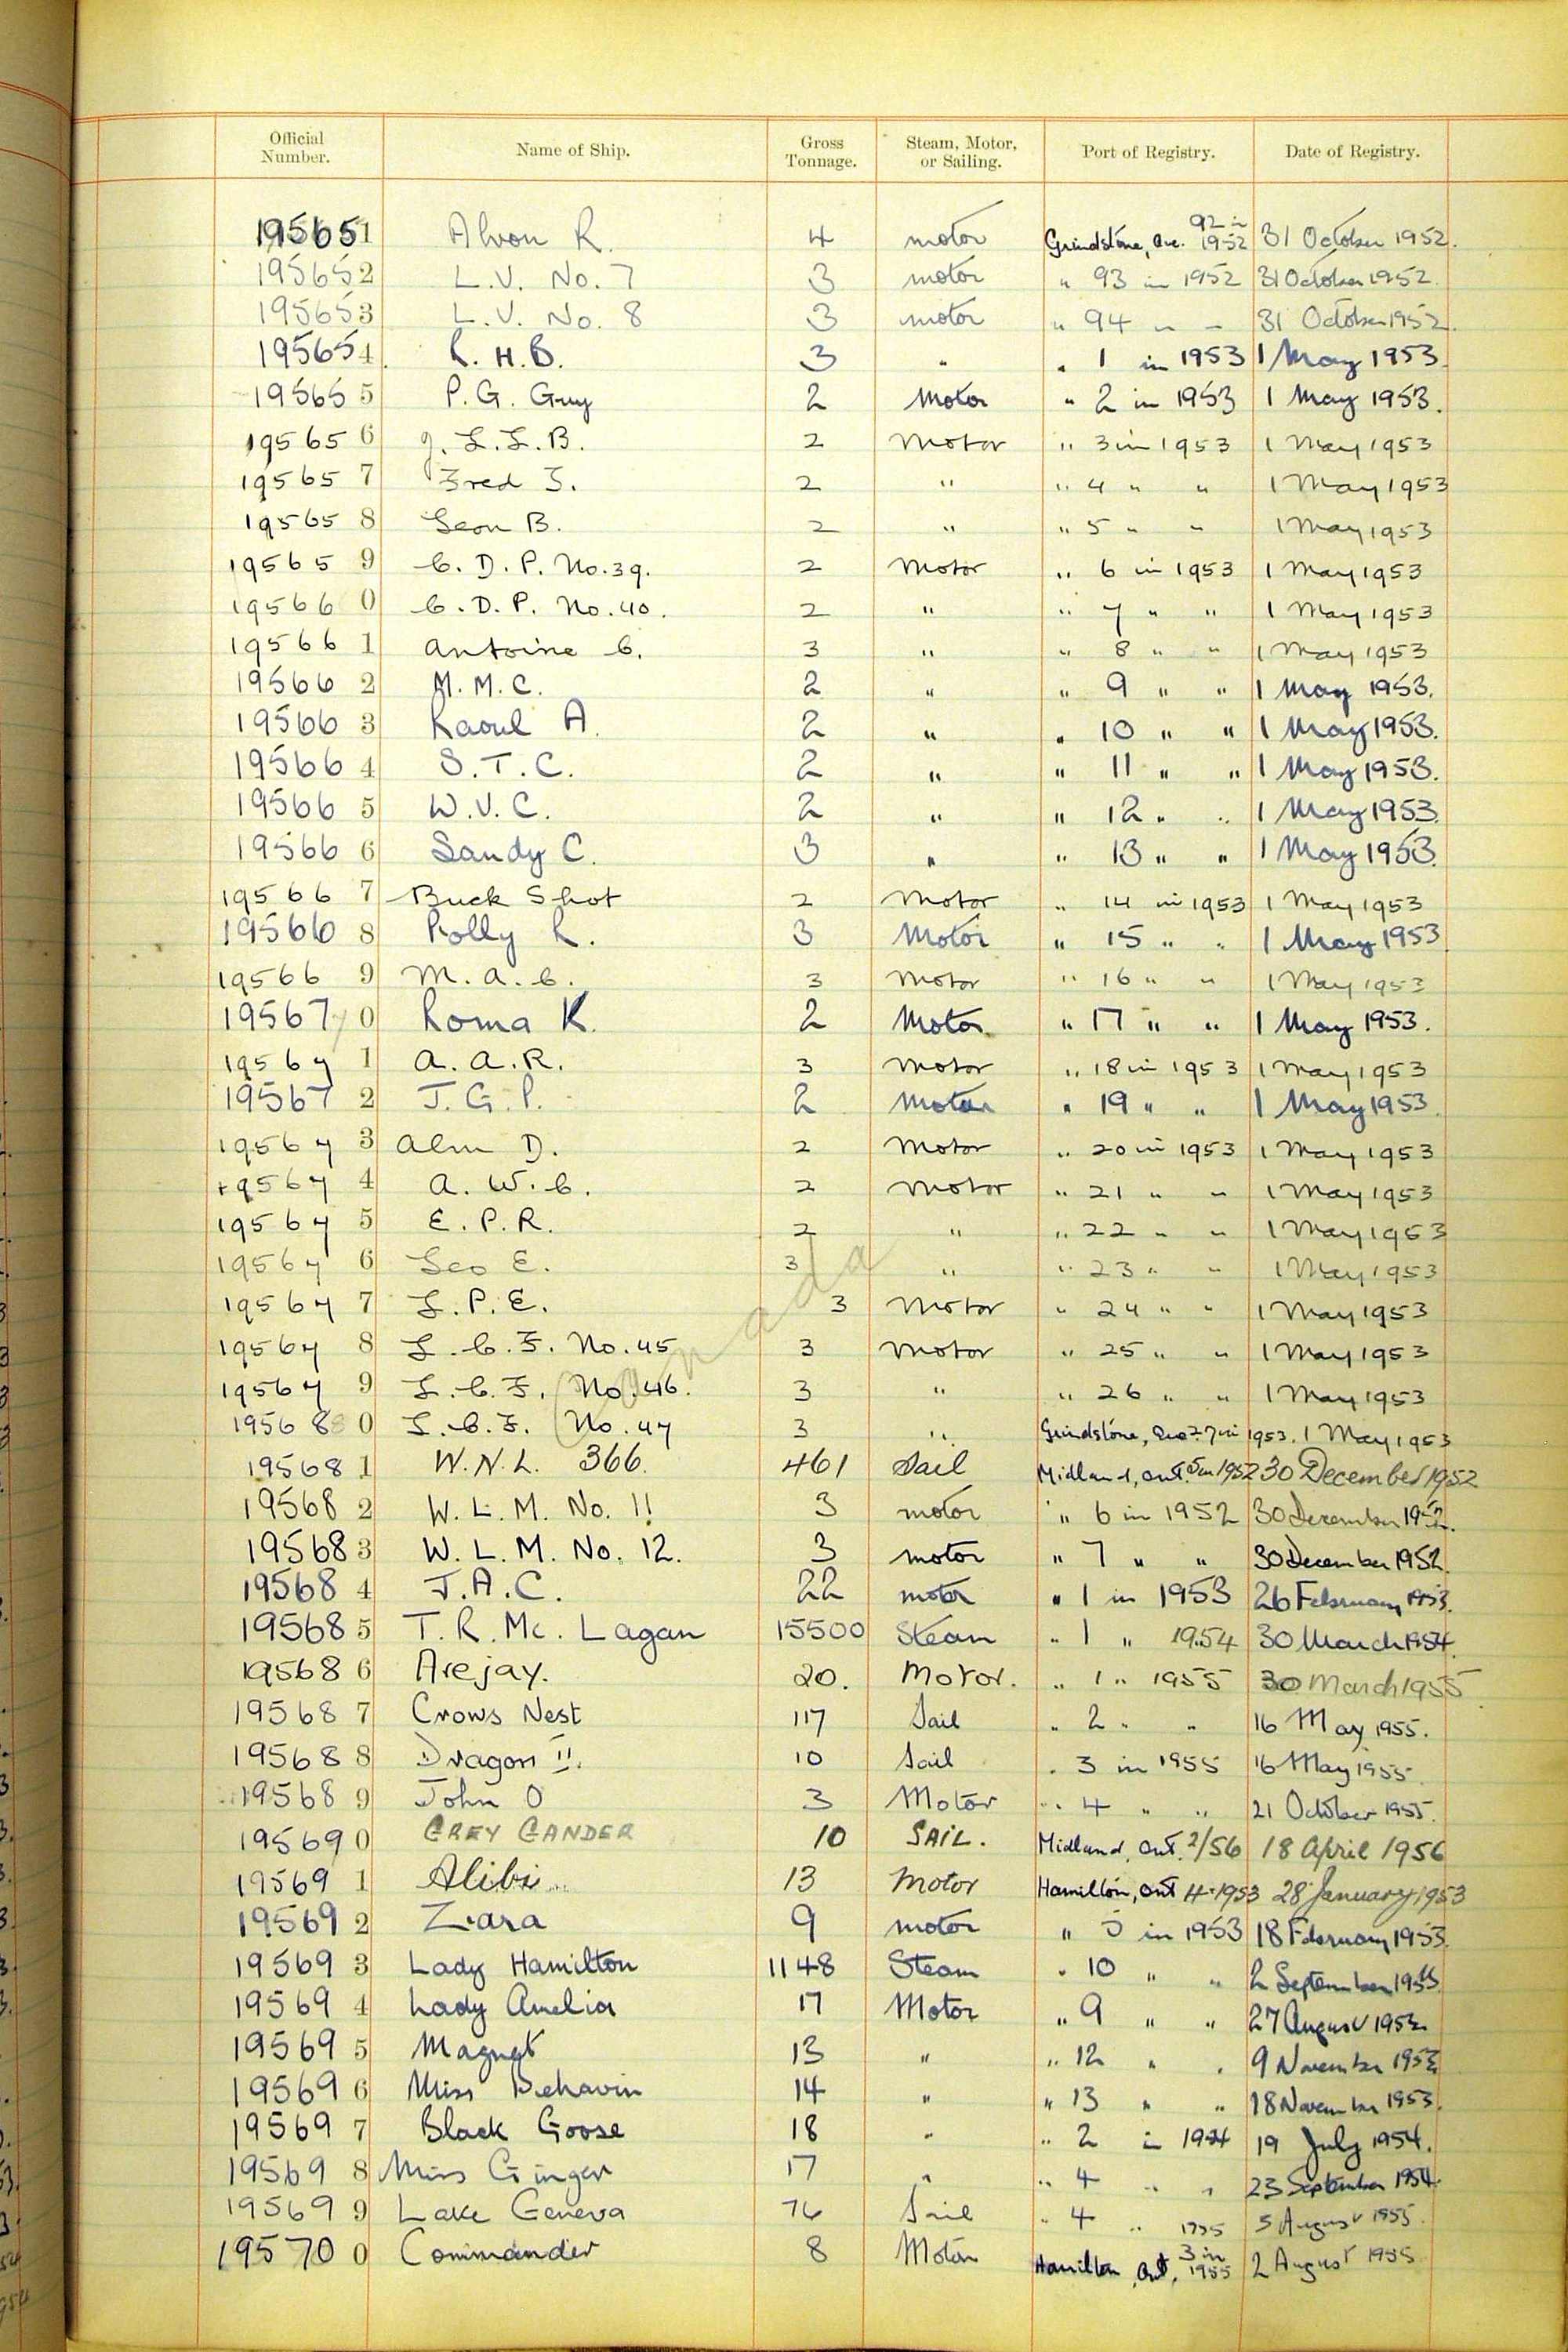 Official Number. Name of Ship. Gross Tonnage. Steam, Motor, or Sailing. Port of Registry. Date of Registry.
195651 Alvon R. 4 motor Grindstone, Que. 92 in 1952 31 October 1952.
195652 L.V. No. 7 3 motor " 93 in 1952 31 October 1952.
195653 L.V. No. 8 3 motor " 94 " " 31 October 1952.
195654 R. H. B. 3 " " 1 in 1953 1 May 1953.
195655 P. G. Guy 2 Motor " 2 in 1953 1 May 1953.
195656 J. L. L. B. 2 Motor " 3 in 1953 1 May 1953
195657 Fred J. 2 " " 4 " " 1 May 1953
195658 Leon B. 2 " " 5 " " 1 May 1953
195659 C. D. P. No. 39. 2 Motor " 6 in 1953 1 May 1953
195660 C. D. P. No. 40. 2 " " 7 " " 1 May 1953
195661 Antoine C. 3 " " 8 " " 1 May 1953
195662 M. M. C. 2 " " 9 " " 1 May 1953.
195663 Raoul A. 2 " " 10 " " 1 May 1953.
195664 S. T. C. 2 " " 11 " " 1 May 1953.
195665 W. V. C. 2 " " 12 " " 1 May 1953.
195666 Sandy C. 3 " " 13 " " 1 May 1953.
195667 Buck Shot 2 Motor " 14 in 1953 1 May 1953
195668 Polly R. 3 Motor " 15 " " 1 May 1953
195669 M. A. C. 3 Motor " 16 " " 1 May 1953
195670 Roma K. 2 Motor " 17 " " 1 May 1953.
195671 A. A. R. 3 Motor " 18 in 1953 1 May 1953
195672 J. G. P. 2 Motor " 19 " " 1 May 1953
195673 Alm D. 2 Motor " 20 in 1953 1 May 1953
195674 A. W. C. 2 Motor " 21 " " 1 May 1953
195675 E. P. R. 2 " " 22 " " 1 May 1953
195676 Leo E. 3 " " 23 " " 1 May 1953
195677 L. P. E. 3 Motor " 24 " " 1 May 1953
195678 L. C. F. No. 45 3 Motor " 25 " " 1 May 1953
195679 L. C. F. No. 46. 3 " " 26 " " 1 May 1953
195680 L. C. F. No. 47 3 " Grindstone, Que 27 in 1953. 1 May 1953
Canada
195681 W. N. L. 366. 461 Sail Midland, Ont. 5 in 1952 30 December 1952
195682 W. L. M. No. 11 3 motor " 6 in 1952 30 December 1952.
195683 W. L. M. No. 12. 3 motor " 7 " " 30 December 1952.
195684 J. A. C. 22 motor " 1 in 1953 26 February 1953.
195685 T. R. Mc. Lagan 15500 Steam " 1 " 1954 30 March 1954.
195686 Arejay. 20. Motor. " 1 " 1955 30 March 1955
195687 Crows Nest 117 Sail " 2 " " 16 May 1955.
195688 Dragon II. 10 Sail " 3 in 1955 16 May 1955.
195689 John O 3 Motor " 4 " " 21 October 1955.
195690 GREY GANDER 10 SAIL. Midland, Ont. 2/56 18 April 1956
195691 Alibi 13 Motor Hamilton, Ont 4.1953 28 January 1953
195692 Zara 9 motor " 5 in 1953 18 February 1953.
195693 Lady Hamilton 1148 Steam " 10 " " 2 September 1953.
195694 Lady Amelia 17 Motor " 9 " " 27 August 1953.
195695 Magnet 13 " " 12 " " 9 November 1953
195696 Miss Behavin 14 " " 13 " " 18 November 1953.
195697 Black Goose 18 " " 2 in 1954 19 July 1954.
195698 Miss Ginger 17 " " 4 " " 23 September 1954.
195699 Lake Geneva 76 Sail " 4 " 1955 5 August 1955.
195700 Commander 8 Motor Hamilton, Ont, 3 in 1955 2 August 1955